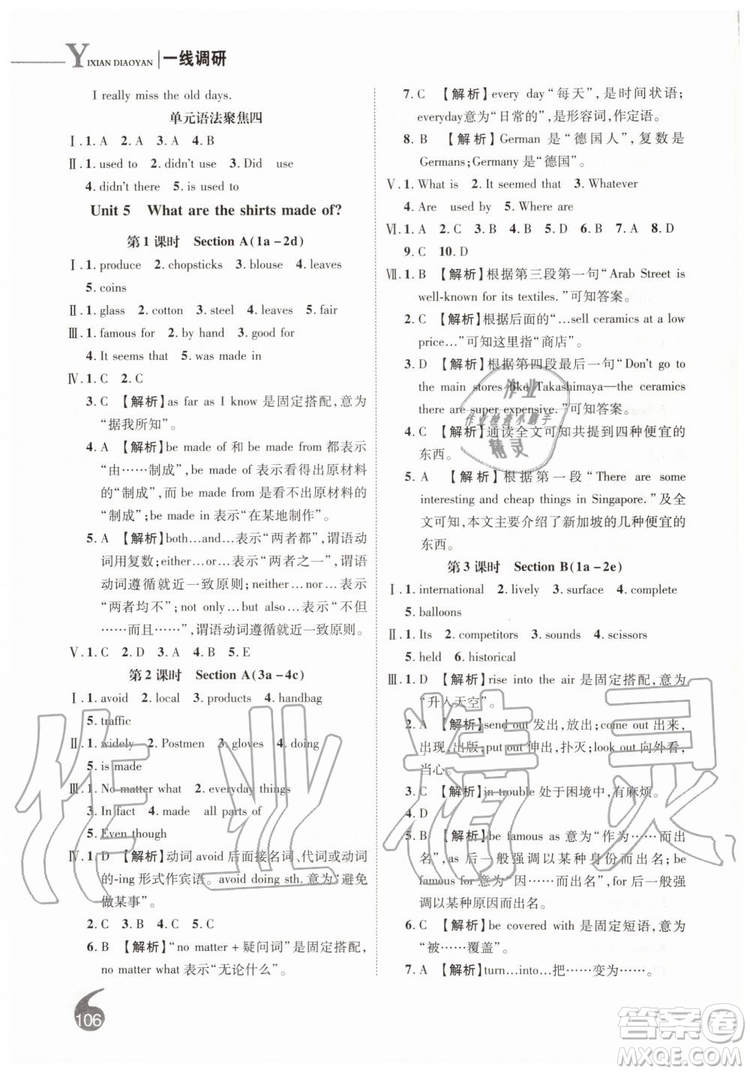 YIXIAN DIAOYAN 一线调研
I really miss the old days.
单元语法聚焦四
Ⅰ. 1. A 2. A 3. A 4. B
Ⅱ. 1. used to 2. didn't use 3. Did use
4. didn't there 5. is used to
Unit 5 What are the shirts made of?
第1课时 Section A(1a-2d)
Ⅰ. 1. produce 2. chopsticks 3. blouse 4. leaves
5. coins
Ⅱ. 1. glass 2. cotton 3. steel 4. grass 5. fair
Ⅲ. 1. famous for 2. by hand 3. good for
4. It seems that 5. was made in
Ⅳ. 1. C 2. C
3. C 【解析】as far as I know 是固定搭配,意为
“据我所知”。
4. A 【解析】be made of 与 be made from 都表示
“由……制成”,但前者表示能看得出来原材料
的“制成”,而后者表示已经看不出来原材料
的“制成”;be made in 表示“在某地制作”。
5. A 【解析】both…and…表示“两者都”,谓语动
词用复数;either…or…表示“两者之一”,谓语
动词遵循就近一致原则;neither…nor…表示
“两者均不”,not only…but also…表示“不但
……而且……”,谓语动词遵循就近一致原则。
Ⅴ. 1. C 2. D 3. A 4. B 5. E
第2课时 Section A(3a-4c)
Ⅰ. 1. avoid 2. local 3. products 4. handbag
5. traffic
Ⅱ. 1. widely 2. Postmen 3. gloves 4. doing
5. is made
Ⅲ. 1. No matter what 2. everyday things
3. In fact 4. made of
5. Even though
Ⅳ. 1. D 【解析】动词 avoid 后面接名词、代词或动词
的-ing 形式作宾语。avoid doing sth.意为“避免
做某事”。
2. C 3. B 4. A 5. C
6. B 【解析】“no matter + 疑问词”是固定搭配,
no matter what 表示“无论什么”。
7. C 【解析】every day “每天”,是时间状语;
everyday意为“日常的”,是形容词,作定语。
8. B 【解析】German 是“德国人”,复数是
Germans;Germany 是“德国”。
Ⅴ. 1. What is 2. It seemed that 3. Whatever
4. Are used by 5. is moved to
Ⅵ. 1. A 2. D 3. B 4. B 5. A 6. D 7. B 8. A
9. C 10. D
Ⅶ. 1. B 【解析】根据第三段第一句“Arab Street is
well-known for its textiles.”可知答案。
2. C 【解析】根据后面的“…sell ceramics at a low
price…”可知这里指“商店”。
3. D 【解析】根据第四段最后一句“Don't go to
the main stores like Takashimaya—the ceramics
there are super expensive.”可知答案。
4. A 【解析】通读全文可知共提到四种便宜的
东西。
5. A 【解析】根据第一段“There are some
interesting and cheap things in Singapore.”及全
文可知,本文主要介绍了新加坡的几种便宜的
东西。
第3课时 Section B(1a-2e)
Ⅰ. 1. international 2. lively 3. surface 4. complete
5. balloons
Ⅱ. 1. Its 2. competitors 3. sounds 4. scissors
5. held 6. historical
Ⅲ. 1. D 【解析】rise into the air 是固定搭配,意为
“升入天空”。
2. A 【解析】send out 发出,放出;come out 出来,
出现,出版;put out 伸出,扑灭;look out 向外看,
当心。
3. C 【解析】in trouble 处于困境中,有麻烦。
4. D
5. B 【解析】be famous as 意为“作为……而出
名”,后面强调以某种身份而出名;be
famous for 意为“因……而出名”,后面
强调以某种原因而出名。
6. C 【解析】be covered with 是固定短语,意为
“被……覆盖”。
7. A 【解析】turn…into…把……变为……。
106
作业
作业检查小助手
精灵
作业精灵
答案圈
MXQE.COM